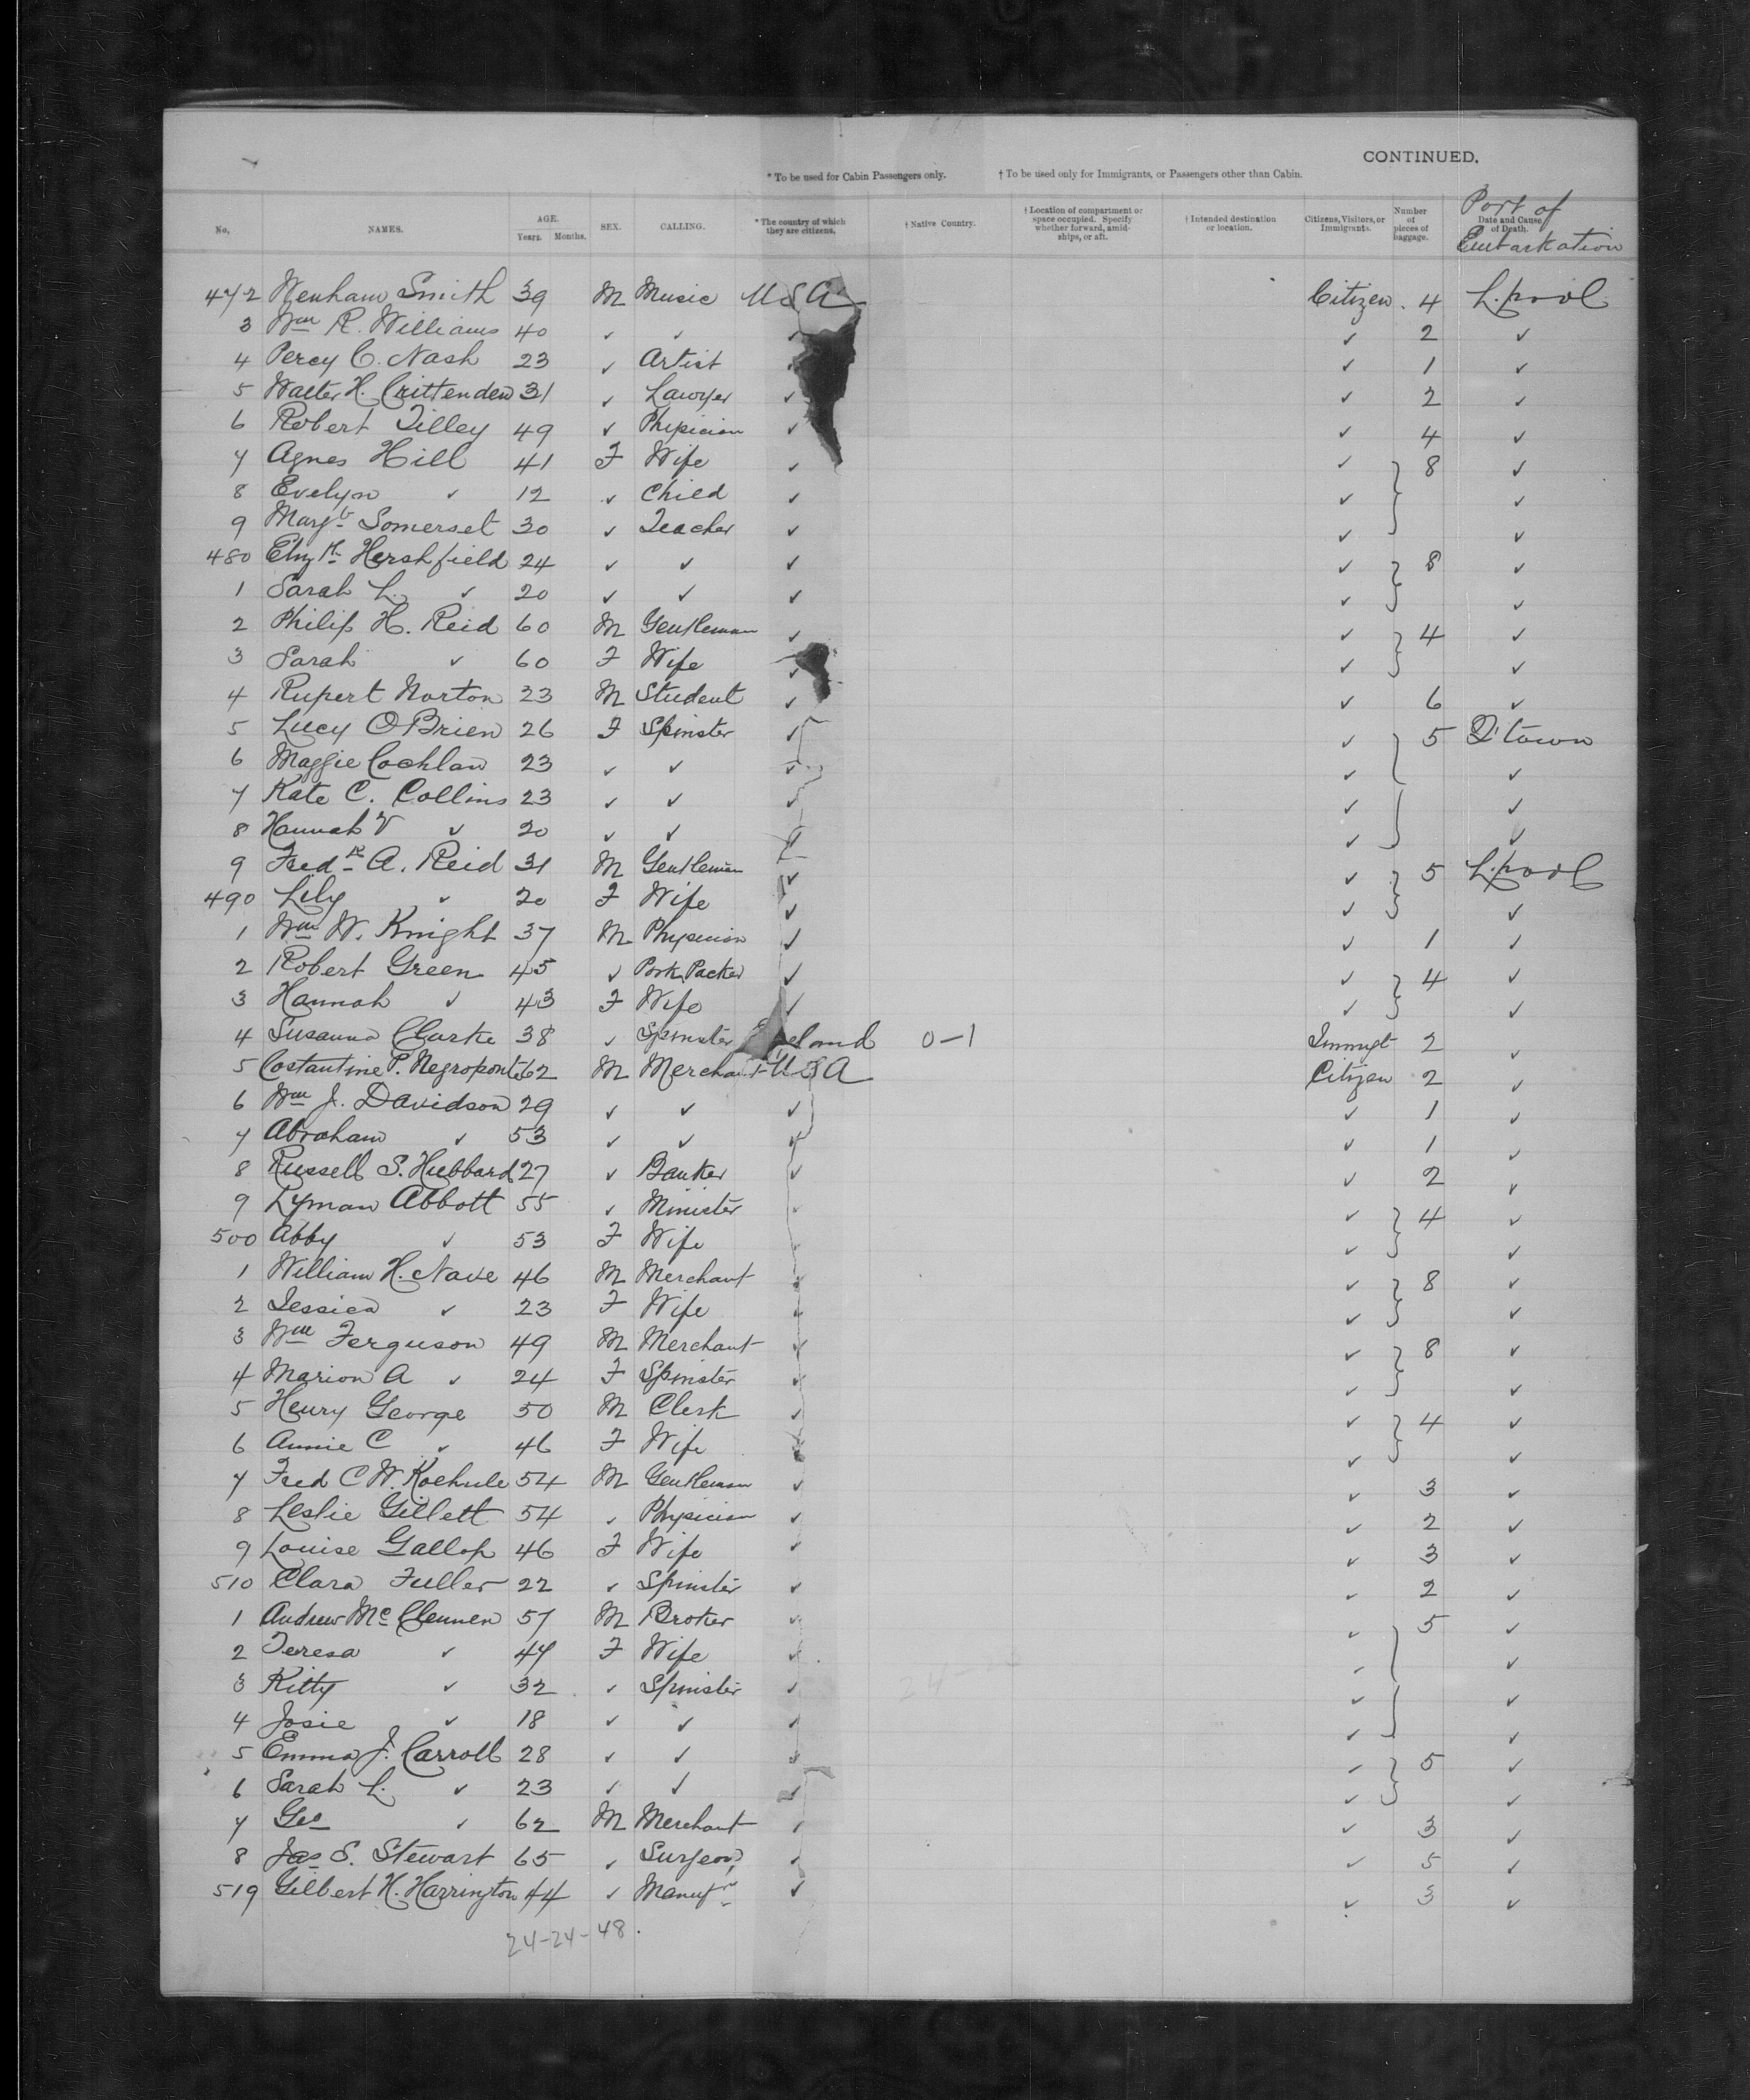 CONTINUED.
* To be used for Cabin Passengers only. † To be used only for Immigrants, or Passengers other than Cabin.
No. NAMES. AGE. Years. Months. SEX. CALLING. * The country of which they are citizens. † Native Country. † Location of compartment or space occupied. Specify whether forward, amidships, or aft. † Intended destination or location. Citizens, Visitors, or Immigrants. Number of pieces of baggage. Date and Cause of Death. Port of Embarkation
472 Wenham Smith 39 M Music USA Citizen. 4 L.pool
3 Wm R. Williams 40 ✓ ✓ ✓ ✓ 2 ✓
4 Percy C. Nash 23 ✓ Artist ✓ 1 ✓
5 Walter H. Crittenden 31 ✓ Lawyer ✓ ✓ 2 ✓
6 Robert Tilley 49 ✓ Physician ✓ ✓ 4 ✓
7 Agnes Hill 41 F Wife ✓ ✓ } 8 ✓
8 Evelyn ✓ 12 ✓ Child ✓ ✓ ✓
9 Margt Somerset 30 ✓ Teacher ✓ ✓ ✓
480 Elizth Hershfield 24 ✓ ✓ ✓ ✓ } 8 ✓
1 Sarah L. ✓ 20 ✓ ✓ ✓ ✓ ✓
2 Philip H. Reid 60 M Gentleman ✓ ✓ } 4 ✓
3 Sarah ✓ 60 F Wife ✓ ✓ ✓
4 Rupert Norton 23 M Student ✓ ✓ 6 ✓
5 Lucy O'Brien 26 F Spinster ✓ ✓ } 5 Q'town
6 Maggie Cochlan 23 ✓ ✓ ✓ ✓ ✓
7 Kate C. Collins 23 ✓ ✓ ✓ ✓ ✓
8 Hannah V ✓ 20 ✓ ✓ ✓ ✓
9 Fredk A. Reid 31 M Gentleman ✓ ✓ } 5 L.pool
490 Lily ✓ 20 F Wife ✓ ✓ ✓
1 Wm W. Knight 37 M Physician ✓ ✓ 1 ✓
2 Robert Green 45 ✓ Pork Packer ✓ ✓ } 4 ✓
3 Hannah ✓ 43 F Wife ✓ ✓ ✓
4 Susanna Clarke 38 ✓ Spinster 0-1 Immigt 2 ✓
5 Costantine P. Negroponte 62 M Merchant USA Citizen 2 ✓
6 Wm J. Davidson 29 ✓ ✓ ✓ ✓ 1 ✓
7 Abraham ✓ 53 ✓ ✓ ✓ ✓ 1 ✓
8 Russell S. Hubbard 27 ✓ Banker ✓ ✓ 2 ✓
9 Lyman Abbott 55 ✓ Minister ✓ ✓ } 4 ✓
500 Abby ✓ 53 F Wife ✓ ✓ ✓
1 William H. Nave 46 M Merchant ✓ ✓ } 8 ✓
2 Jessica ✓ 23 F Wife ✓ ✓ ✓
3 Wm Ferguson 49 M Merchant ✓ ✓ } 8 ✓
4 Marion A ✓ 24 F Spinster ✓ ✓ ✓
5 Henry George 50 M Clerk ✓ ✓ } 4 ✓
6 Annie C ✓ 46 F Wife ✓ ✓ ✓
7 Fred C W. Koehnle 54 M Gentleman ✓ ✓ 3 ✓
8 Leslie Gillett 54 ✓ Physician ✓ ✓ 2 ✓
9 Louise Gallop 46 F Wife ✓ ✓ 3 ✓
510 Clara Fuller 22 ✓ Spinster ✓ ✓ 2 ✓
1 Andrew McClennen 57 M Broker ✓ ✓ } 5 ✓
2 Teresa ✓ 47 F Wife ✓ ✓ ✓
3 Kitty ✓ 32 ✓ Spinster ✓ ✓ ✓
4 Josie ✓ 18 ✓ ✓ ✓ ✓ ✓
5 Emma J. Carroll 28 ✓ ✓ ✓ ✓ } 5 ✓
6 Sarah L. ✓ 23 ✓ ✓ ✓ ✓ ✓
7 Geo ✓ 62 M Merchant ✓ ✓ 3 ✓
8 Jas S. Stewart 65 ✓ Surgeon ✓ ✓ 5 ✓
519 Gilbert H. Harrington 44 ✓ Manufr ✓ ✓ 3 ✓
24-24-48.